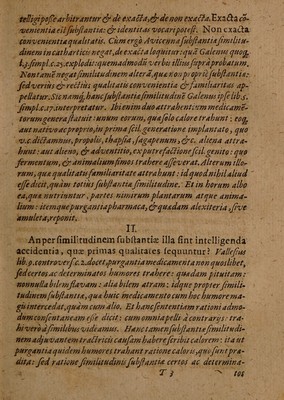 telligi posse arbitrantur & de exacta, & de non exacta. Exacta cō-
venientia est substantiæ: & identitas vocari potest. Non exacta
convenientia qualitatis. Cum ergò Avicenna substantiæ similitu-
dinem in catharticis negat, de exacta loquitur: quā Galenus quoq́;
l.3. simpl. c.23. explodit: quemadmodū verbis illius suprà probatum.
Non tamē negat similitudinem alterā, quæ non propriè substantiæ:
sed veriùs & rectiùs qualitatis convenientia & familiaritas ap-
pellatur. Sic nam; hanc substantiæ similitudinē Galenus ipse lib. 5.
simpl. c.17. interpretatur. Ibi enim duo attrahentivm medicamē-
torum genera statuit: unum eorum, quæ solo calore trahunt: eoq́;
aut nativo ac proprio, in prima scil. generatione implantato, quo
v.c. dictamnus, propolis, thapsia, sagapenum, &c. aliena attra-
hunt: aut alieno, & adventitio, ex putrefactione scil. genito: quo
fermentum, & animalium fimos trahere asseverat. Alterum illo-
rum, quæ qualitatis familiaritate attrahunt: id quod nihil aliud
esse dicit, quàm totius substantiæ similitudine. Et in horum albo
ea, quæ nutriunt, partes nimirum plantarum atque anima-
lium: itemque purgantia pharmaca, & quædam alexiteria, sive
amuleta, reponit.
II.
An per similitudinem substantiæ illa sint intelligenda
accidentia, quæ primas qualitates sequuntur? Vallesius
lib.9. controvers. c.2. docet, purgantia medicamenta non quoslibet,
sed certos, ac determinatos humores trahere: quædam pituitam:
nonnulla bilem flavam: alia bilem atram: idque propter simili-
tudinem substantiæ, quæ huic medicamento cum hoc humore ma-
gis intercedat, quàm cum alio. Et hanc sententiam rationi admo-
dum consentaneam esse dicit: cum omnia pelli à contrariis: tra-
hi verò à similibus vidiamus. Hanc tamen substantiæ similitudi-
nem adjuvantem tractricis causam habere scribit calorem: ita ut
purgantia quidem humores trahant ratione caloris, quo sunt præ-
dita: sed ratione similitudinis substantiæ certos ac determina-
T 3 tos